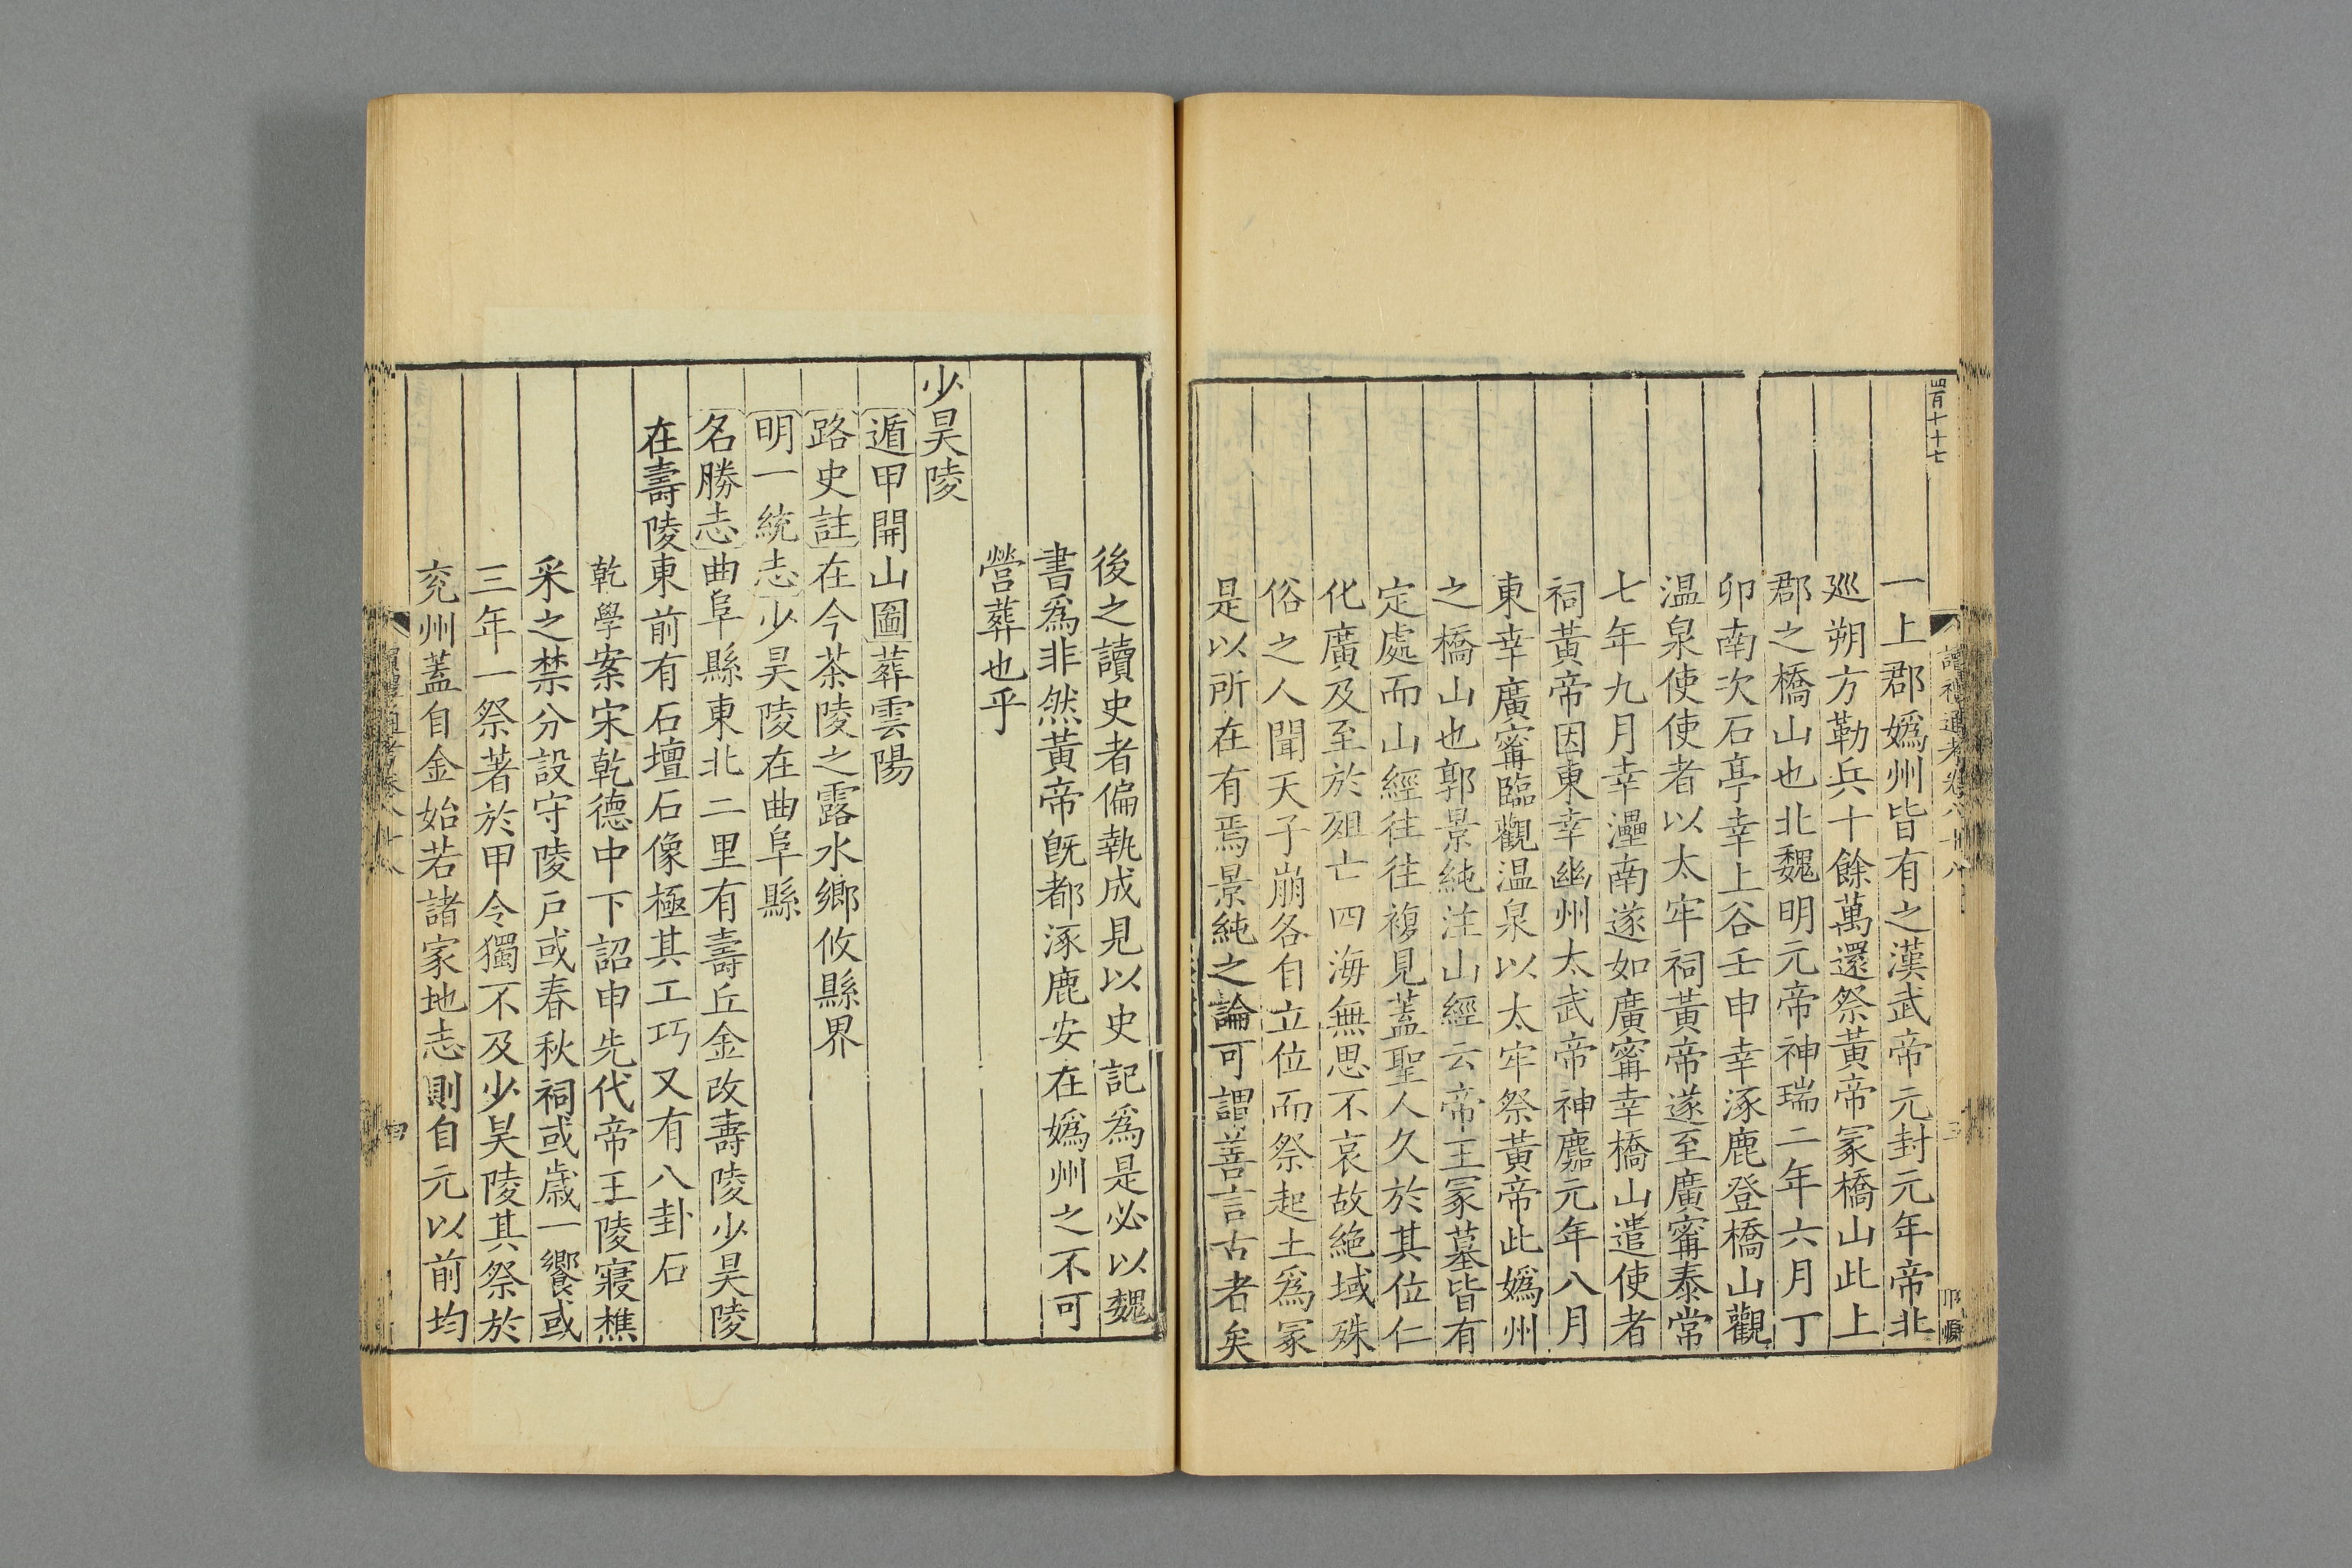 一上郡嬀州皆有之漢武帝元封元年帝北
廵朔方勒兵十餘萬還祭黃帝冢橋山此上
郡之橋山也北魏明元帝神瑞二年六月丁
卯南次石亭幸上谷壬申幸涿鹿登橋山觀
温泉使使者以太牢祠黃帝遂至廣甯泰常
七年九月幸㶟南遂如廣甯幸橋山遣使者
祠黃帝因東幸幽州太武帝神䴥元年八月
東幸廣甯臨觀温泉以太牢祭黃帝此嬀州
之橋山也郭景純注山經云帝王冢墓皆有
定處而山經往往複見蓋聖人久於其位仁
化廣及至於殂亡四海無思不哀故絶域殊
俗之人聞天子崩各自立位而祭起土爲冢
是以所在有焉景純之論可謂善言古者矣
後之讀史者偏執成見以史記爲是必以魏
書爲非然黃帝旣都涿鹿安在嬀州之不可
營葬也乎
少昊陵
遁甲開山圖葬雲陽
路史註在今茶陵之露水鄉攸縣界
明一統志少昊陵在曲阜縣
名勝志曲阜縣東北二里有壽丘金改壽陵少昊陵
在壽陵東前有石壇石像極其工巧又有八卦石
乾學案宋乾德中下詔申先代帝王陵寢樵
采之禁分設守陵戸或春秋祠或歲一饗或
三年一祭著於甲令獨不及少昊陵其祭於
兖州蓋自金始若諸家地志則自元以前均
讀禮通考卷八十八
三
四